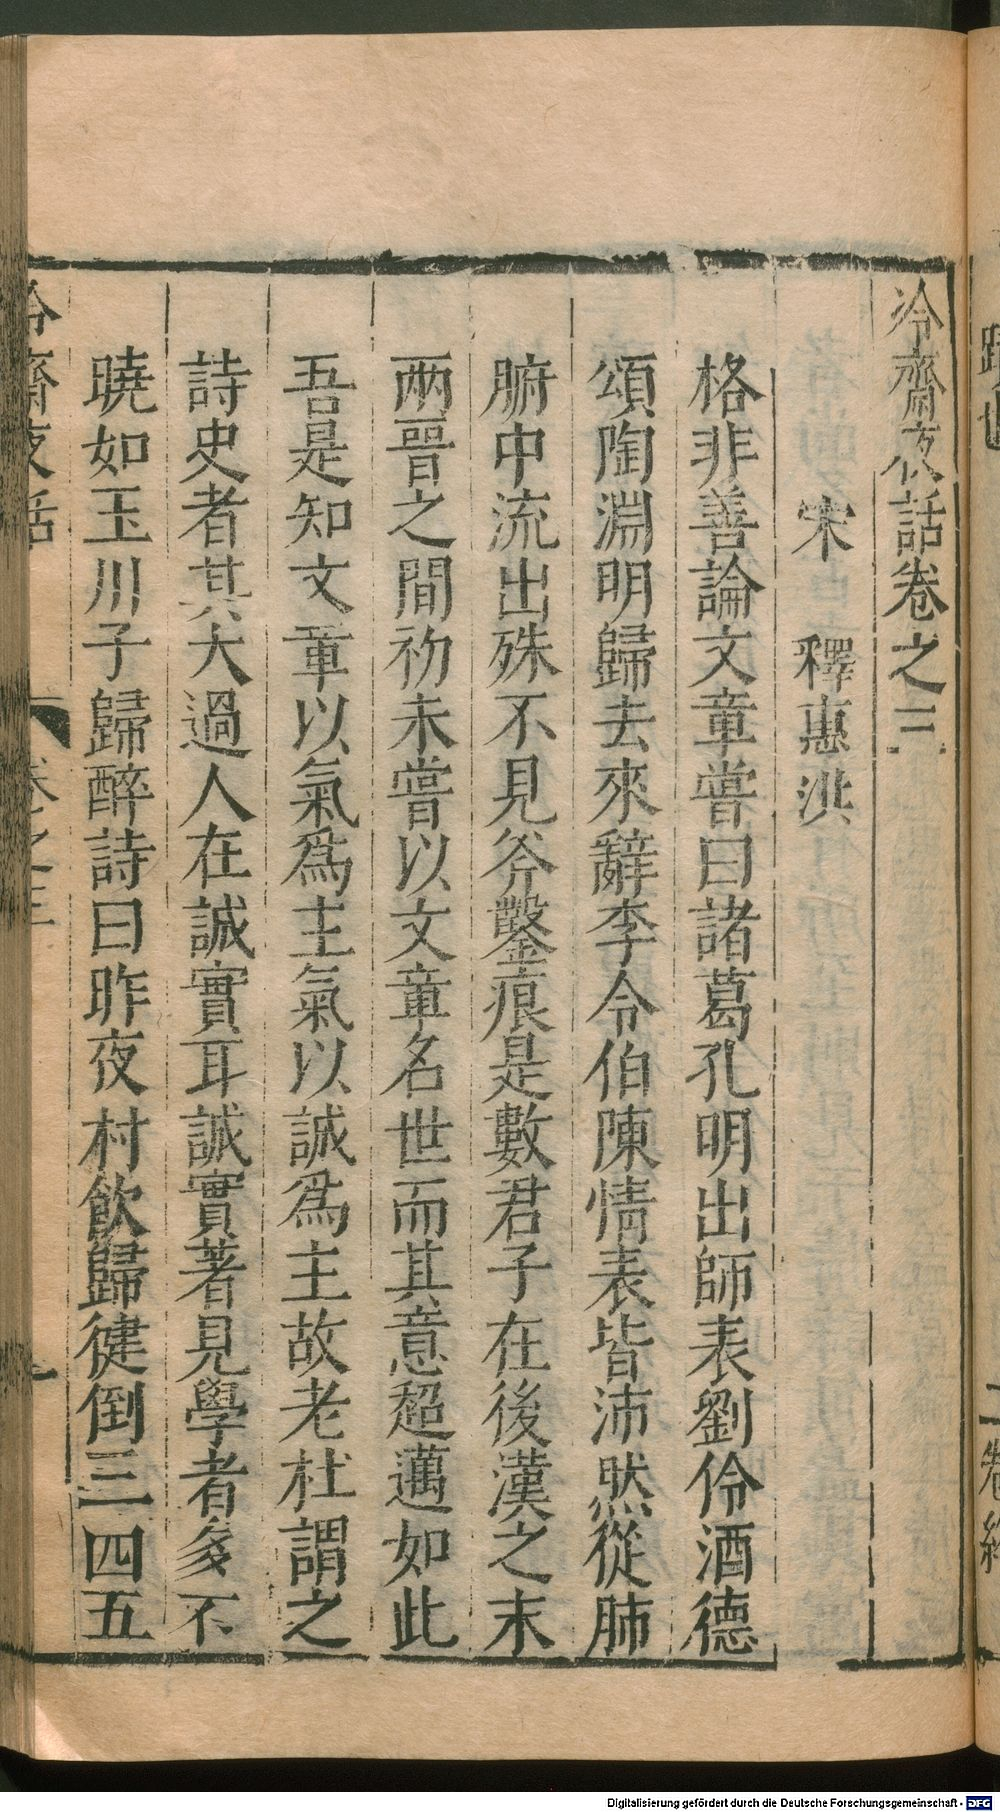 冷齋夜話卷之三
宋 釋惠洪
格非善論文章嘗曰諸葛孔明出師表劉伶酒德
頌陶淵明歸去來辭李令伯陳情表皆沛然從肺
腑中流出殊不見斧鑿痕是數君子在後漢之末
两晉之間初未嘗以文章名世而其意超邁如此
吾是知文章以氣爲主氣以誠爲主故老杜謂之
詩史者其大過人在誠實耳誠實著見學者多不
曉如玉川子歸醉詩曰昨夜村飲歸徤倒三四五
冷齋夜話 卷之三
Digitalisierung gefördert durch die Deutsche Forschungsgemeinschaft - DFG